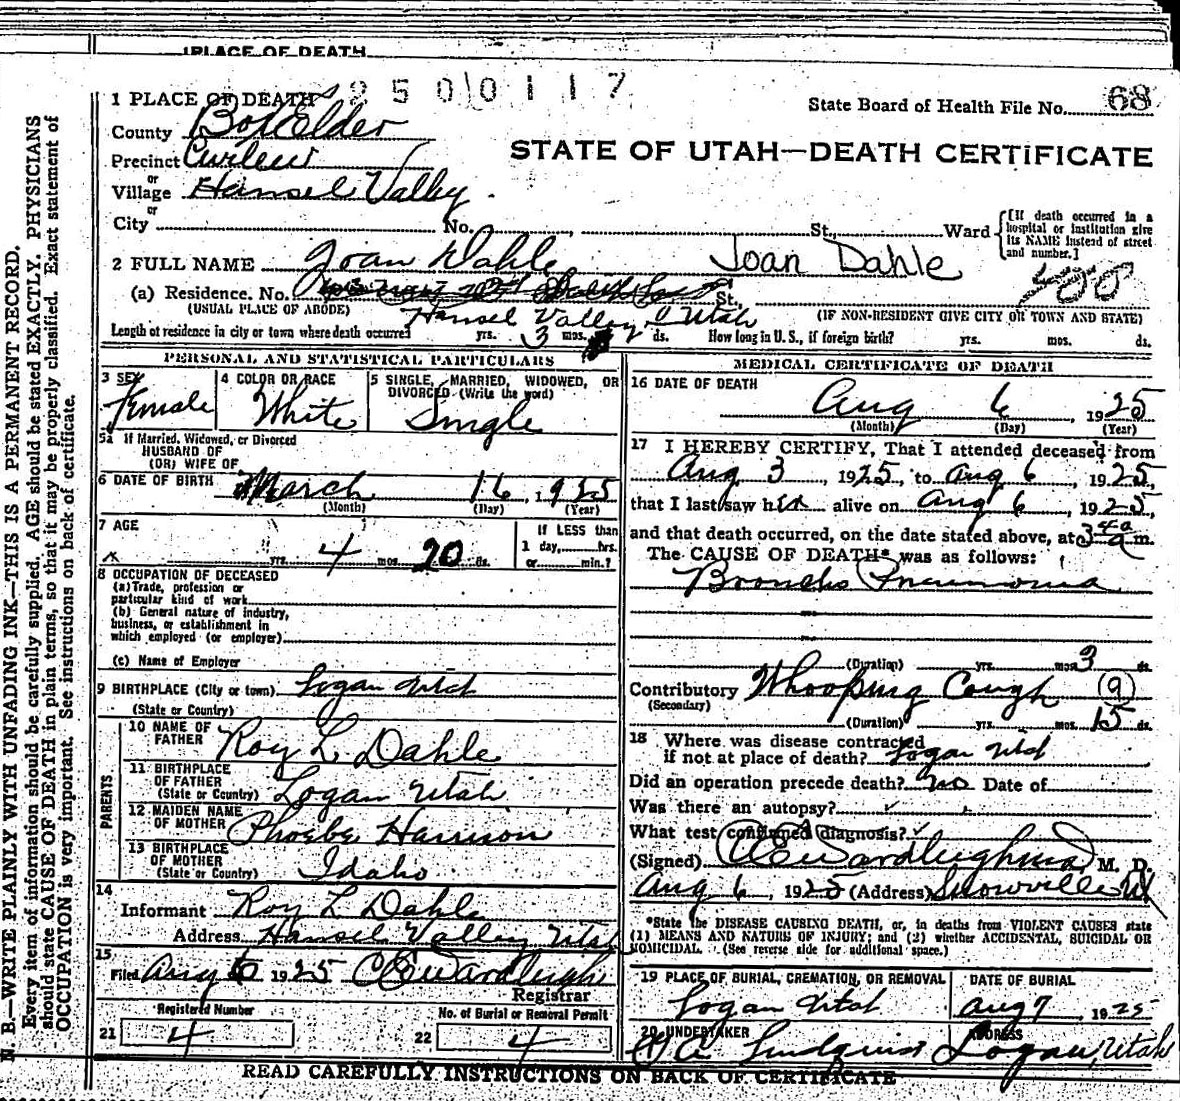 PLACE OF DEATH
2500117
1 PLACE OF DEATH
State Board of Health File No. 68
County Box Elder
STATE OF UTAH—DEATH CERTIFICATE
Precinct Curlew
or
Village Hansel Valley
or
City No. St., Ward
[If death occurred in a hospital or institution give its NAME instead of street and number.]
2 FULL NAME Joan Dahle Joan Dahle
(a) Residence. No. St.,
(USUAL PLACE OF ABODE) Hansel Valley, Utah (IF NON-RESIDENT GIVE CITY OR TOWN AND STATE)
Length of residence in city or town where death occurred yrs. 3 mos. ds. How long in U. S., if foreign birth? yrs. mos. ds.
PERSONAL AND STATISTICAL PARTICULARS
3 SEX Female
4 COLOR OR RACE White
5 SINGLE, MARRIED, WIDOWED, OR DIVORCED (Write the word) Single
5a If Married, Widowed, or Divorced
HUSBAND OF
(OR) WIFE OF
6 DATE OF BIRTH March 16, 1925
(Month) (Day) (Year)
7 AGE
yrs. 4 mos. 20 ds.
If LESS than
1 day, hrs.
or min.?
8 OCCUPATION OF DECEASED
(a) Trade, profession or
particular kind of work
(b) General nature of industry,
business, or establishment in
which employed (or employer)
(c) Name of Employer
9 BIRTHPLACE (City or town) Logan Utah
(State or Country)
PARENTS
10 NAME OF FATHER Roy L Dahle
11 BIRTHPLACE OF FATHER Logan Utah
(State or Country)
12 MAIDEN NAME OF MOTHER Phoebe Harrison
13 BIRTHPLACE OF MOTHER Idaho
(State or Country)
14
Informant Roy L Dahle
Address Hansel Valley Utah
15
Filed Aug 6 1925 C E Wardleigh
Registrar
Registered Number
21 4
No. of Burial or Removal Permit
22 4
MEDICAL CERTIFICATE OF DEATH
16 DATE OF DEATH
Aug 6, 1925
(Month) (Day) (Year)
17 I HEREBY CERTIFY, That I attended deceased from
Aug 3, 1925, to Aug 6, 1925,
that I last saw her alive on Aug 6, 1925,
and that death occurred, on the date stated above, at 3 40 a m.
The CAUSE OF DEATH* was as follows:
Broncho Pneumonia
(Duration) yrs. mos. 3 ds.
Contributory Whooping Cough 9
(Secondary)
(Duration) yrs. mos. 15 ds.
18 Where was disease contracted
if not at place of death? Logan Utah
Did an operation precede death? No Date of
Was there an autopsy?
What test confirmed diagnosis?
(Signed) C E Wardleigh M. D.
Aug 6, 1925 (Address) Snowville Ut
*State the DISEASE CAUSING DEATH, or, in deaths from VIOLENT CAUSES state
(1) MEANS AND NATURE OF INJURY; and (2) whether ACCIDENTAL, SUICIDAL OR
HOMICIDAL. (See reverse side for additional space.)
19 PLACE OF BURIAL, CREMATION, OR REMOVAL Logan Utah
DATE OF BURIAL Aug 7, 1925
20 UNDERTAKER Lindquist
ADDRESS Logan, Utah
READ CAREFULLY INSTRUCTIONS ON BACK OF CERTIFICATE
N. B.—WRITE PLAINLY WITH UNFADING INK—THIS IS A PERMANENT RECORD.
Every item of information should be carefully supplied. AGE should be stated EXACTLY. PHYSICIANS
should state CAUSE OF DEATH in plain terms, so that it may be properly classified. Exact statement of
OCCUPATION is very important. See instructions on back of certificate.